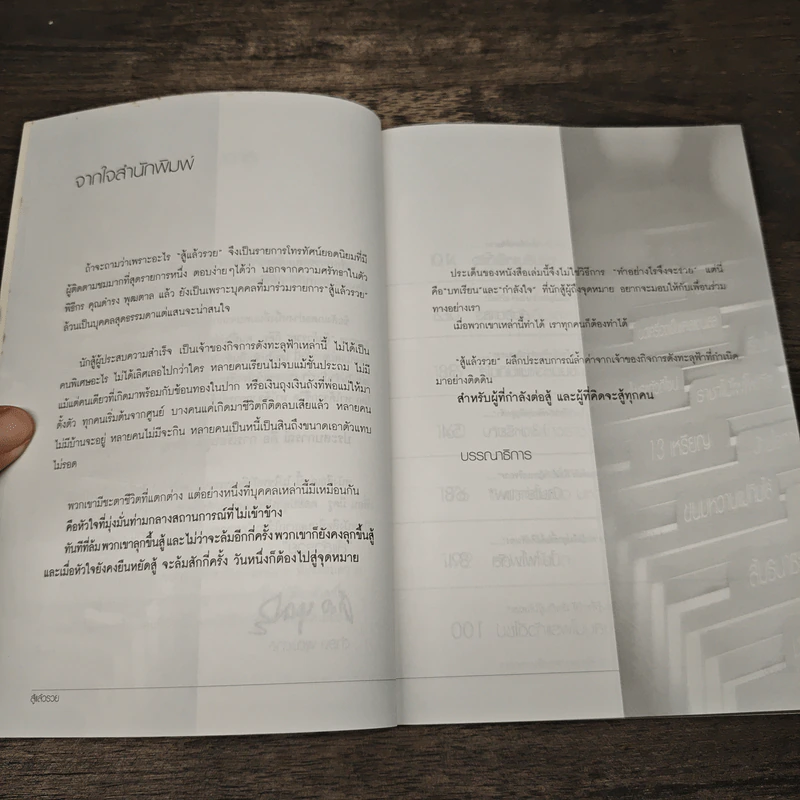 จากใจสำนักพิมพ์
ถ้าจะถามว่าเพราะอะไร "สู้แล้วรวย" จึงเป็นรายการโทรทัศน์ยอดนิยมที่มี
ผู้ติดตามชมมากที่สุดรายการหนึ่ง ตอบง่ายๆได้ว่า นอกจากความศรัทธาในตัว
พิธีกร คุณดำรง พุฒตาล แล้ว ยังเป็นเพราะบุคคลที่มาร่วมรายการ"สู้แล้วรวย"
ล้วนเป็นบุคคลสุดธรรมดาแต่แสนจะน่าสนใจ
นักสู้ผู้ประสบความสำเร็จ เป็นเจ้าของกิจการดังทะลุฟ้าเหล่านี้ ไม่ได้เป็น
คนพิเศษอะไร ไม่ได้เลิศเลอไปกว่าใคร หลายคนเรียนไม่จบแม้ชั้นประถม ไม่มี
แม้แต่คนเดียวที่เกิดมาพร้อมกับช้อนทองในปาก หรือเงินถุงเงินถังที่พ่อแม่ให้มา
ตั้งตัว ทุกคนเริ่มต้นจากศูนย์ บางคนแค่เกิดมาชีวิตก็ติดลบเสียแล้ว หลายคน
ไม่มีบ้านจะอยู่ หลายคนไม่มีจะกิน หลายคนเป็นหนี้เป็นสินถึงขนาดเอาตัวแทบ
ไม่รอด
พวกเขามีชะตาชีวิตที่แตกต่าง แต่อย่างหนึ่งที่บุคคลเหล่านี้มีเหมือนกัน
คือหัวใจที่มุ่งมั่นท่ามกลางสถานการณ์ที่ไม่เข้าข้าง
ทันทีที่ล้ม พวกเขาลุกขึ้นสู้ และไม่ว่าจะล้มอีกกี่ครั้ง พวกเขาก็ยังคงลุกขึ้นสู้
และเมื่อหัวใจยังคงยืนหยัดสู้ จะล้มสักกี่ครั้ง วันหนึ่งก็ต้องไปสู่จุดหมาย
สู้แล้วรวย
ประเด็นของหนังสือเล่มนี้จึงไม่ใช่วิธีการ "ทำอย่างไรจึงจะรวย" แต่นี่
คือ"บทเรียน"และ"กำลังใจ" ที่นักสู้ผู้ถึงจุดหมาย อยากจะมอบให้กับเพื่อนร่วม
ทางอย่างเรา
เมื่อพวกเขาเหล่านี้ทำได้ เราทุกคนก็ต้องทำได้
"สู้แล้วรวย" ผลึกประสบการณ์ล้ำค่าจากเจ้าของกิจการดังทะลุฟ้าที่กำเนิด
มาอย่างติดดิน
สำหรับผู้ที่กำลังต่อสู้ และผู้ที่คิดจะสู้ทุกคน
บรรณาธิการ